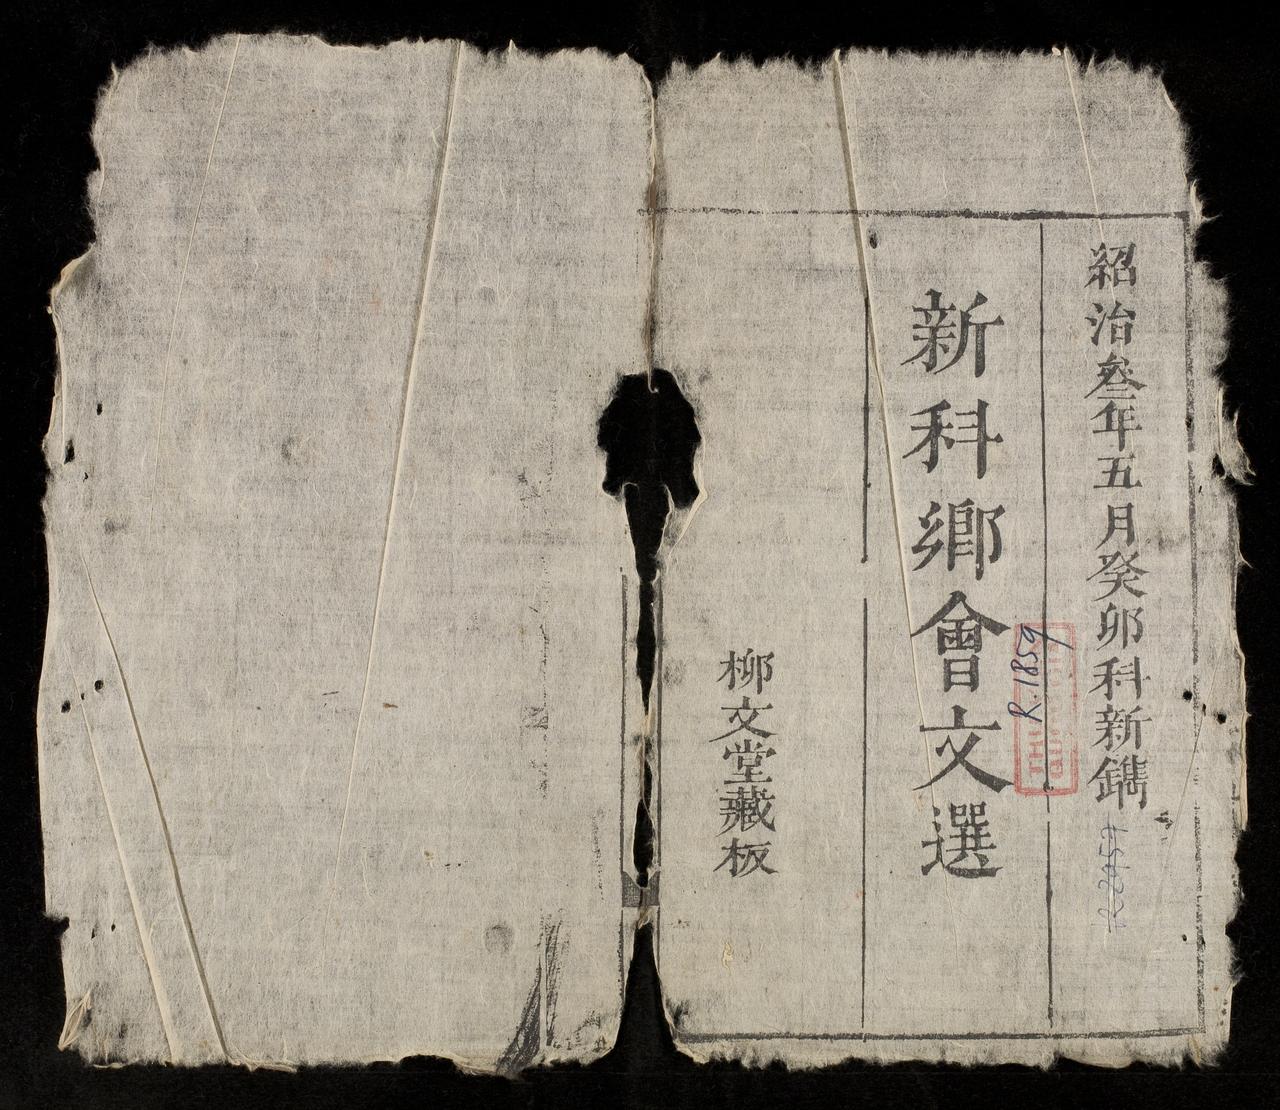 紹治叄年五月癸卯科新鐫
新科鄉會文選
柳文堂藏板
R.1859